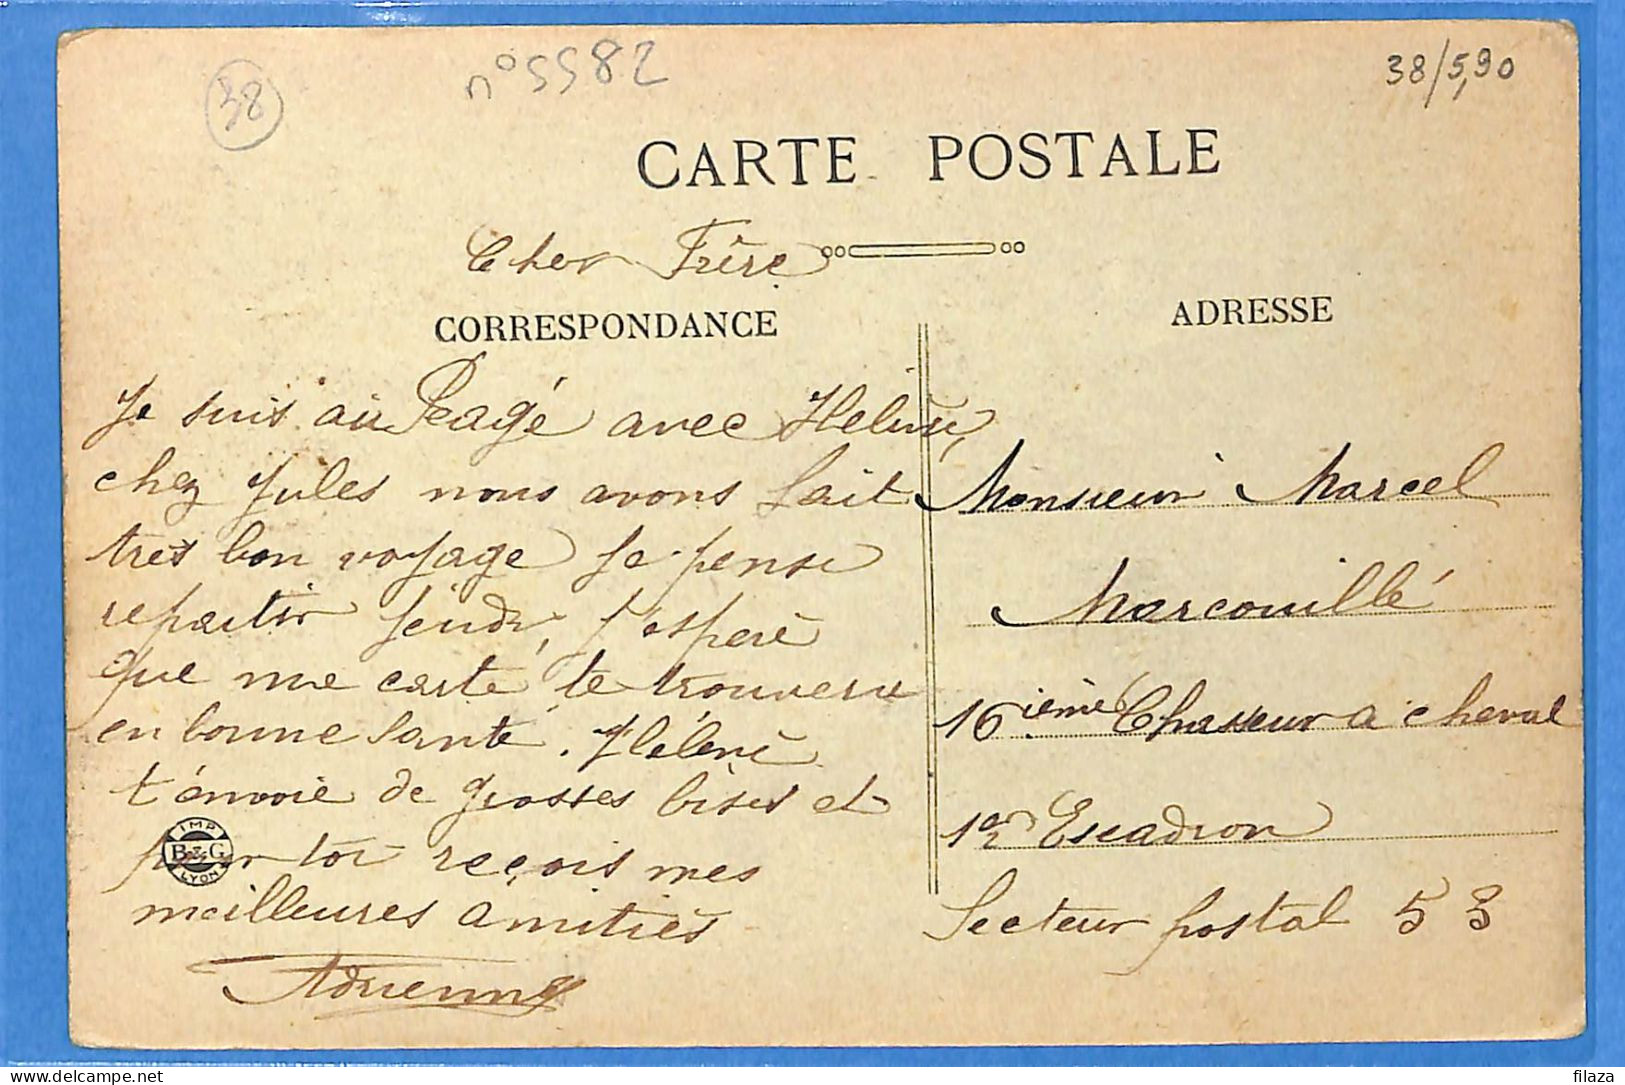 38
n° 5582
38/5,90
CARTE POSTALE
Cher Frère
CORRESPONDANCE
Je suis au Péage avec Helène
chez Jules nous avons fait
très bon voyage Je pense
repartir jeudi, j'espère
que me carte te trouvera
en bonne santé. Hélène
t'envoie de grosses bises et
pour toi reçois mes
meilleures amitiés
Adrienne
IMP
B & G
LYON
ADRESSE
Monsieur Marcel
Marcouillé
16ième Chasseur a cheval
1er Escadron
Secteur postal 53
filaza